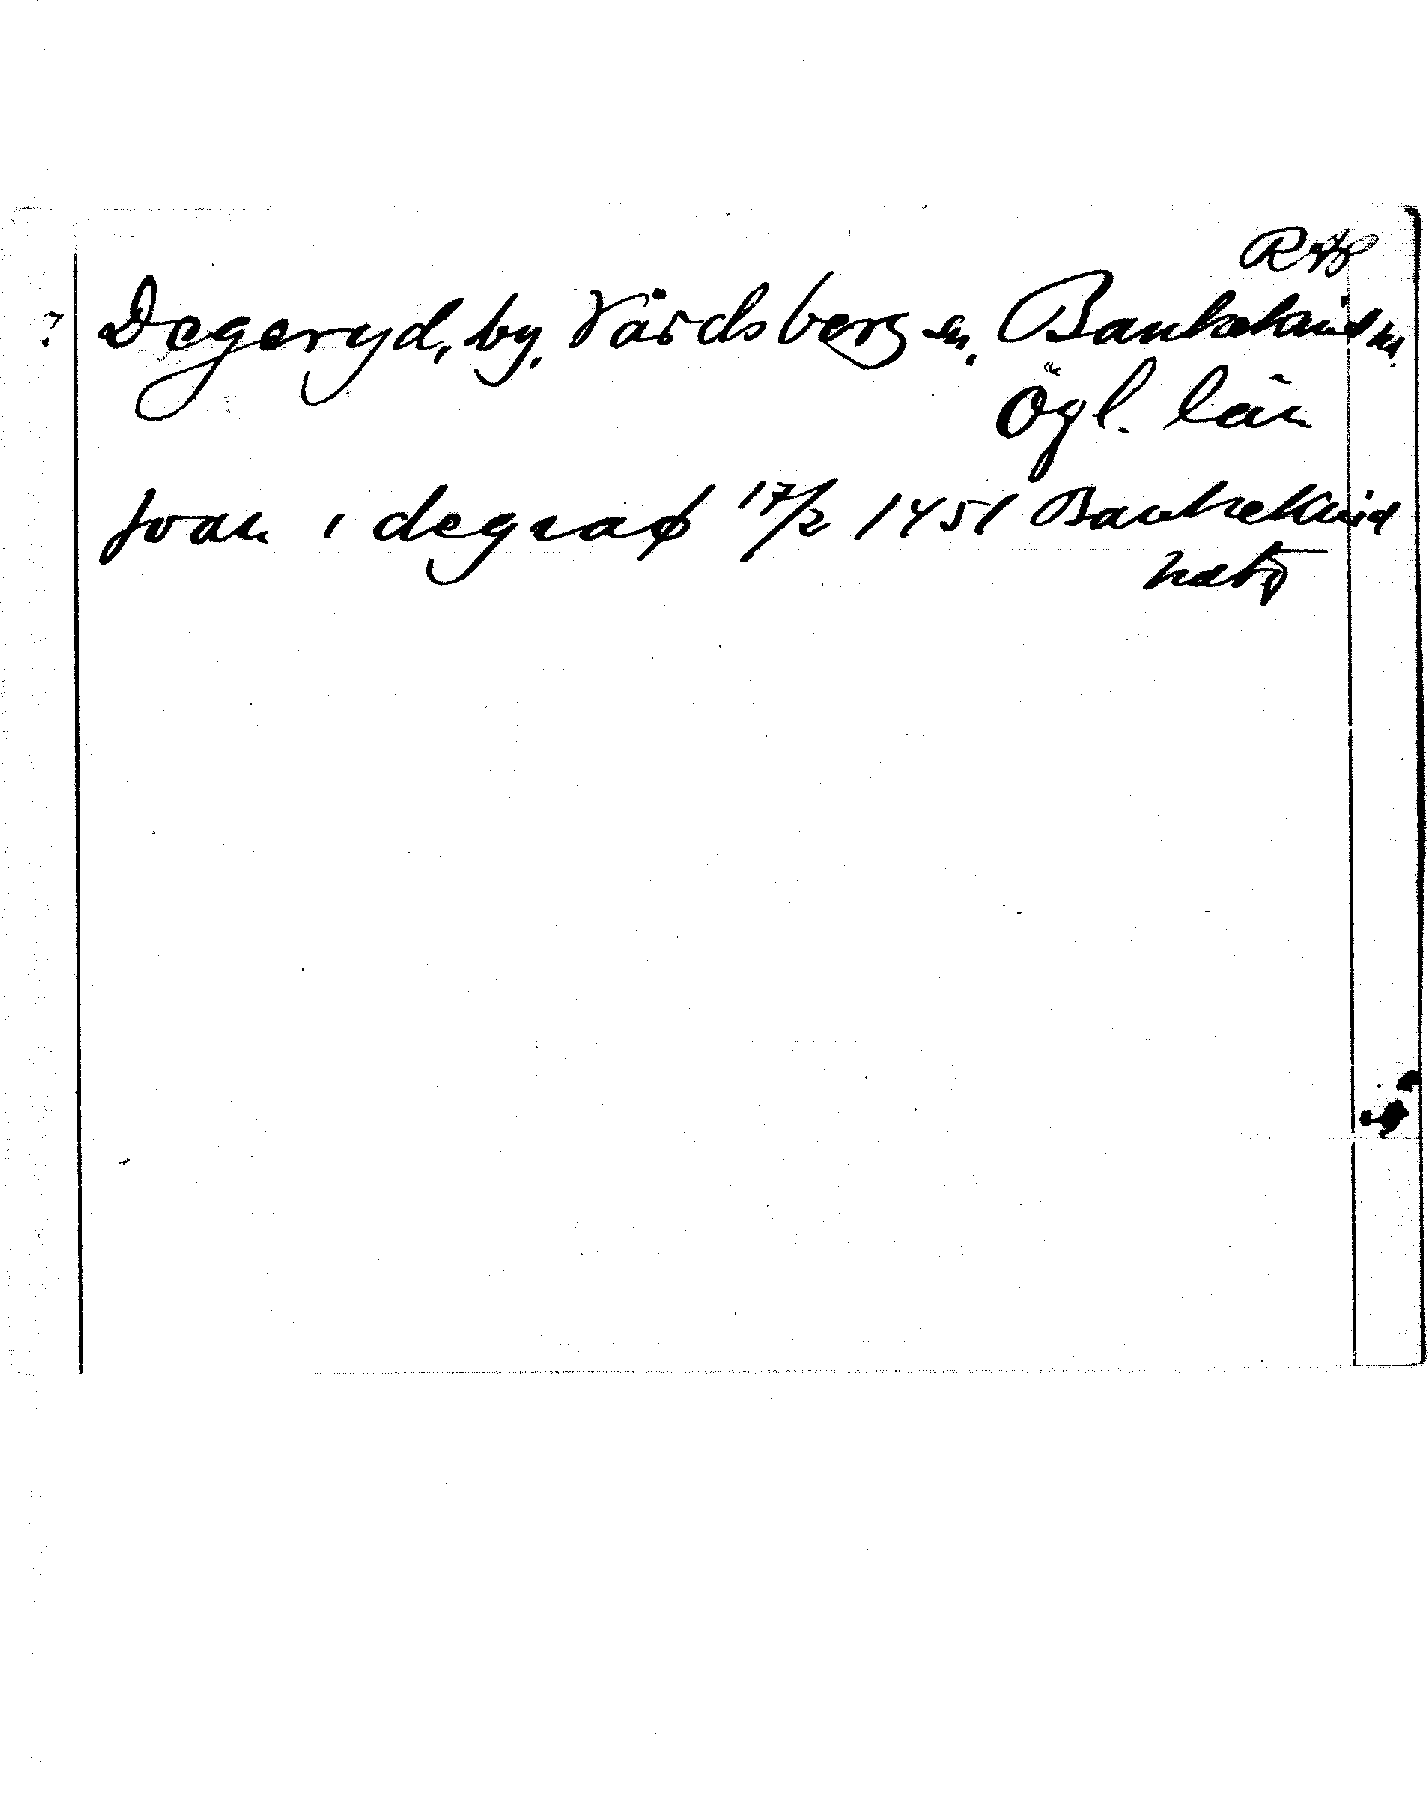 RAP
? Degeryd, by, Vårdsberg sn. Bankekind hd.
Ögl. län
joan i degraø 17/2 1451 Bankekind